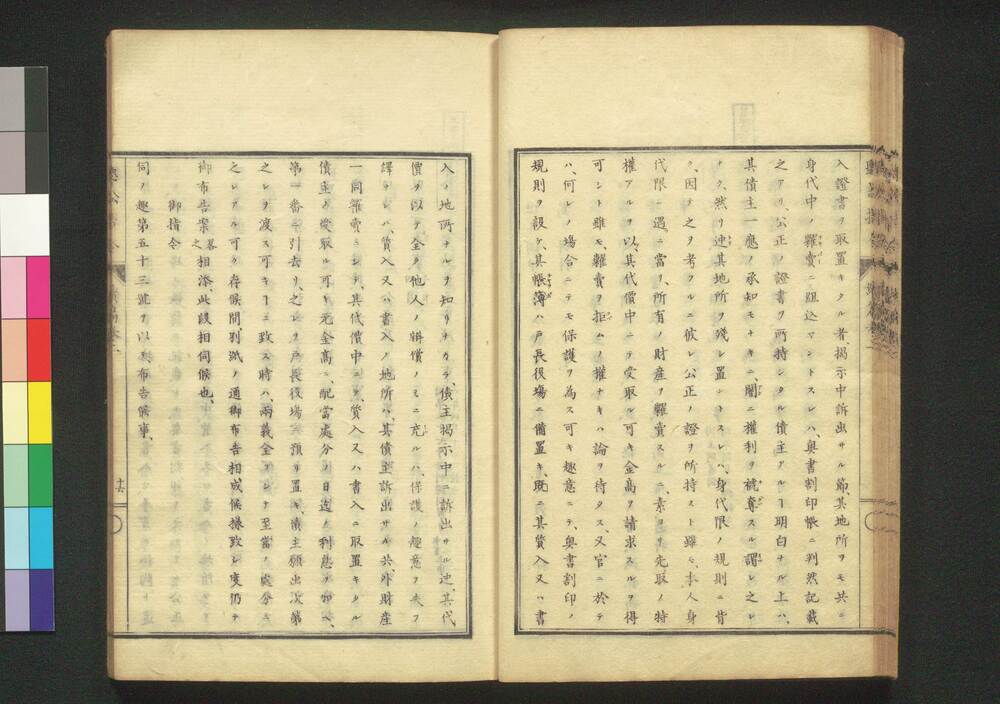 入ノ證書ヲ取置キタル者揭示中訴出サル節、其地所ヲモ共ニ
身代中ノ糶賣ニ組込マントスレハ、奥書割印帳ニ判然記載
之アリ、公正ノ證書ヲ所持シタル債主アルヿ明白ナル上ハ、
其債主一應ノ承知モナキニ、闇ニ權利ヲ褫奪スルノ謂レ之レ
ナク、然リ迚其地所ヲ殘シ置ントスレハ、身代限ノ規則ニ背
ク、因テ之ヲ考フルニ彼レ公正ノ證ヲ所持スト雖モ、本人身
代限ニ遇ニ當リ、所有ノ財産ヲ糶賣スルニ、素ヨリ先取ノ特
權アルヲ以、其代價中ニテ受取ル可キ金高ヲ請求スルヲ得
可シト雖モ、糶賣ヲ拒ムノ權ナキハ論ヲ待タス、又官ニ於テ
ハ、何レノ場合ニテモ保護ヲ為ス可キ趣意ニテ、奥書割印ノ
規則ヲ設ケ、其帳簿ハ戸長役場ニ備置キ、既ニ其質入又ハ書
入ノ地所ナルヲ知リナカラ、債主揭示中ニ訴出サル迚、其代
價ヲ以テ全ク他人ノ辨償ノミニ充ルハ、保護ノ趣意ヲ失フ
譯ナレハ、質入又ハ書入ノ地所ハ、其債主訴出サル共、外財産
一同糶賣ニシテ、其代價中ニテ、質入又ハ書入ニ取置キタル
債主ノ受取ル可キ元金高ニ、配當處分ノ日迄ノ利息ヲ加ヘ、
第一番ニ引去リ、之レヲ戸長役場ヘ預リ置キ、債主願出次第
之レヲ渡ス可キヿニ致ス時ハ、兩義全フシテ至當ノ處分ト
之レアル可ク存候間、別紙ノ通御布告相成候樣致シ度仍テ
御布告案之略相添、此段相伺候也、
御指令
伺ノ趣第五十三號ヲ以テ布告候事、
十六